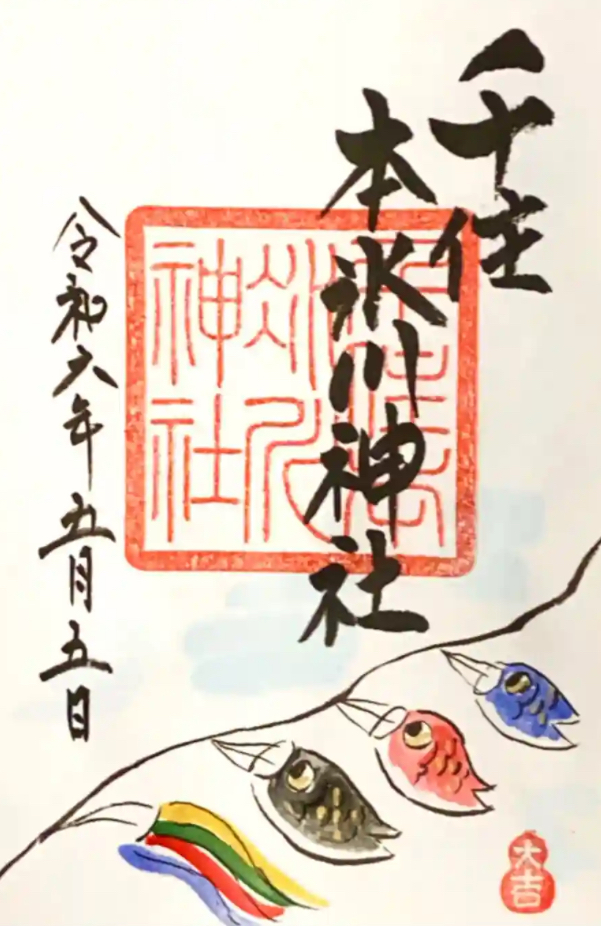 千住
本氷川神社
氷川
神社
令和六年五月五日
大吉